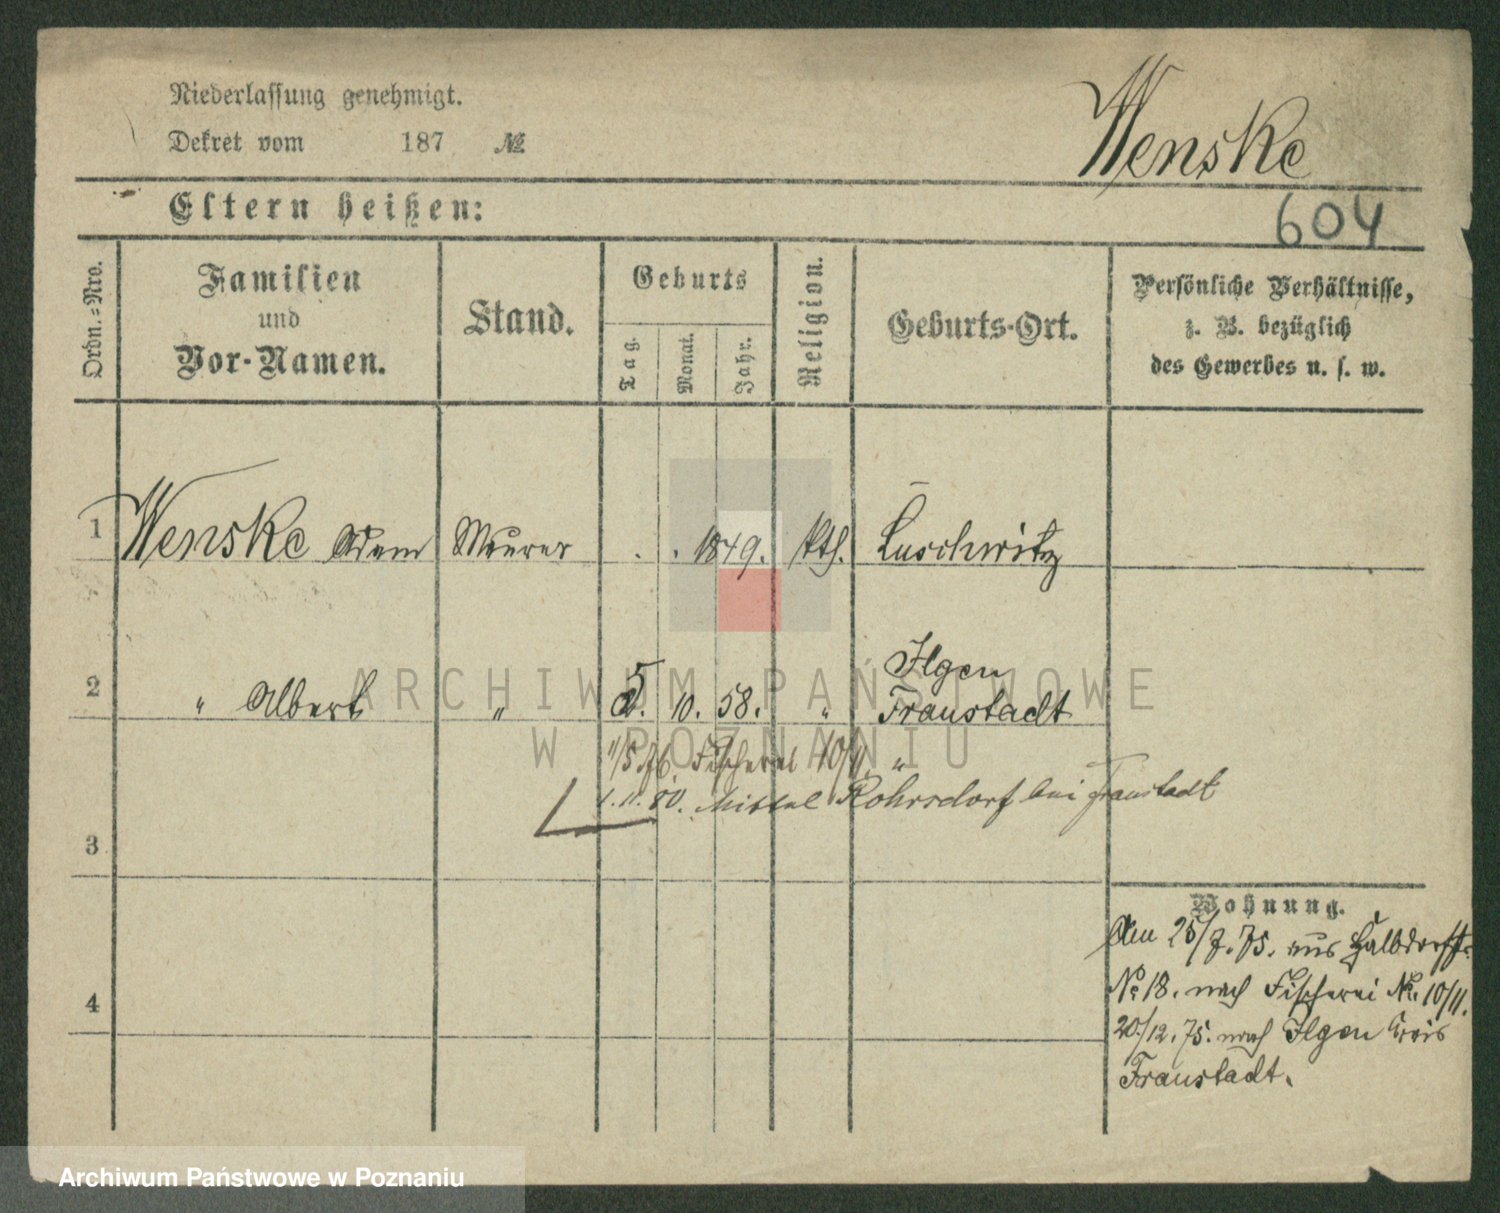 Niederlassung genehmigt.
Dekret vom 187 №
Wenske
Eltern heißen:
604
Ordn.=Nro.
Familien
und
Vor-Namen.
Stand.
Geburts
Tag.
Monat.
Jahr.
Religion.
Geburts-Ort.
Persönliche Verhältnisse,
z. B. bezüglich
des Gewerbes u. s. w.
1 Wenske Adam Maurer . . 1849. kth. Luschwitz
2 " Albert " 5. 10. 58. " Ilgen
Fraustadt
11/5 76. Fischerei 10/11. "
1.11.80. Mittel Rohrsdorf bei Fraustadt
3
Wohnung.
Am 25/7.75. aus Halbdorfstr.
No 18. nach Fischerei No. 10/11.
4
20./12.75. nach Ilgen Kreis
Fraustadt.
ARCHIWUM PAŃSTWOWE
W POZNANIU
Archiwum Państwowe w Poznaniu